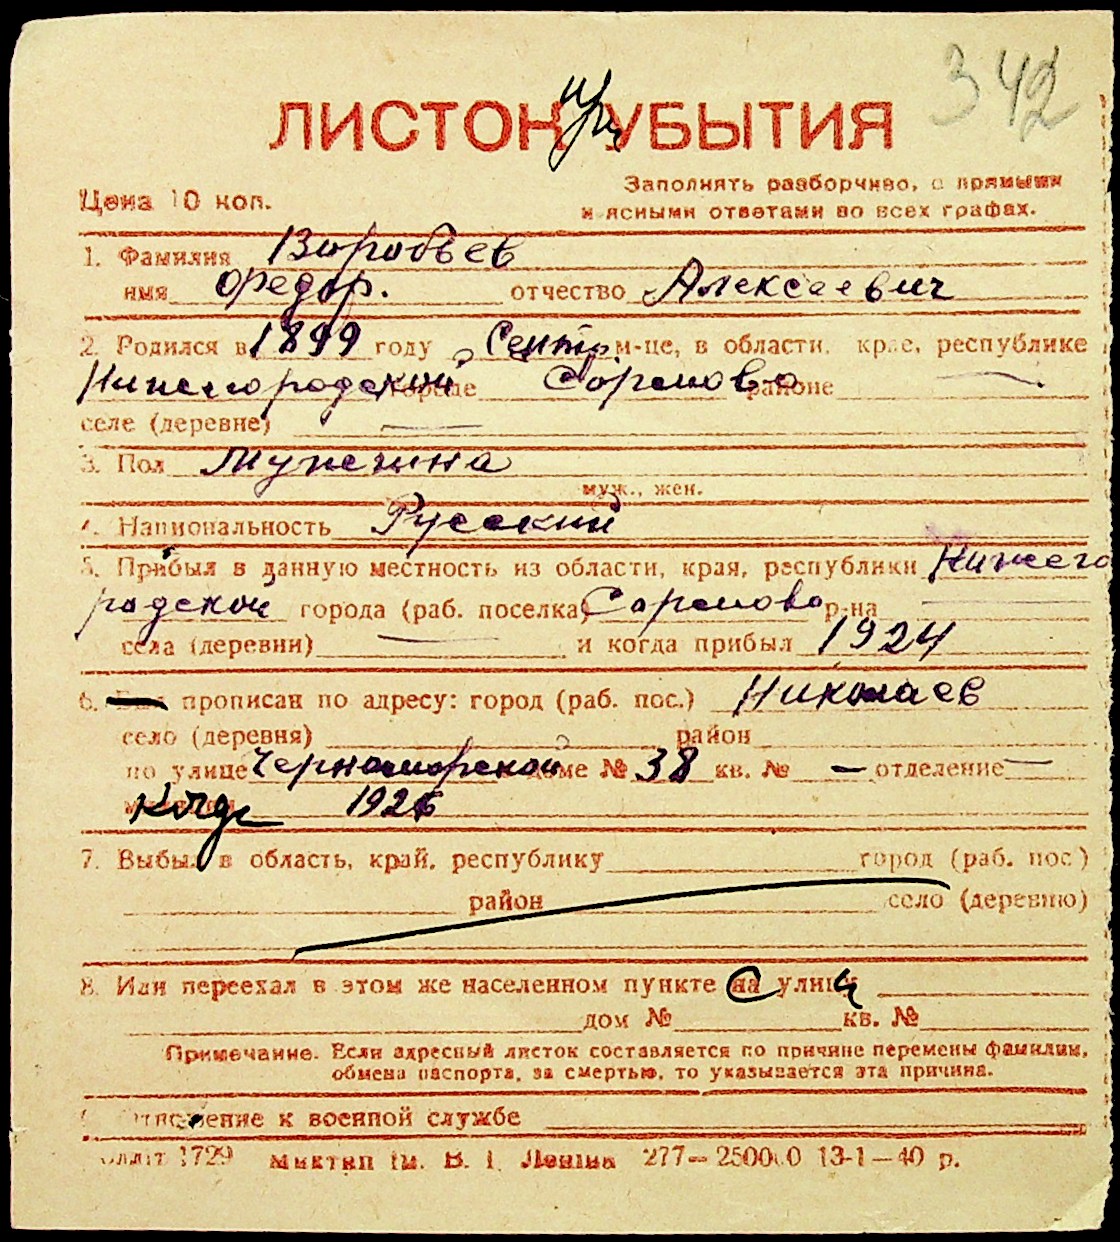 342
ЛИСТОК УБЫТИЯ
Цена 10 коп.
Заполнять разборчиво, с прямыми
и ясными ответами во всех графах.
1. Фамилия Воробьев
имя Федор. отчество Алексеевич
2. Родился в 1899 году Сентр м-це, в области, крае, республике
Нижегородской городе Сормово районе —
селе (деревне) —
3. Пол Мужчина
муж., жен.
4. Национальность Русский
5. Прибыл в данную местность из области, края, республики Нижего
родской города (раб. поселка) Сормово р-на —
села (деревни) — и когда прибыл 1924
6. прописан по адресу: город (раб. пос.) Николаев
село (деревня) район
по улице Черноморской доме № 38 кв. № — отделение —
1926
7. Выбыл в область, край, республику город (раб. пос.)
район село (деревню)
8. Или переехал в этом же населенном пункте на улицу
дом № кв. №
Примечание. Если адресный листок составляется по причине перемены фамилии,
обмена паспорта, за смертью, то указывается эта причина.
9. Отношение к военной службе
Обллiт 1729 Миктип iм. В. I. Ленiна 277—250000 13-1—40 р.